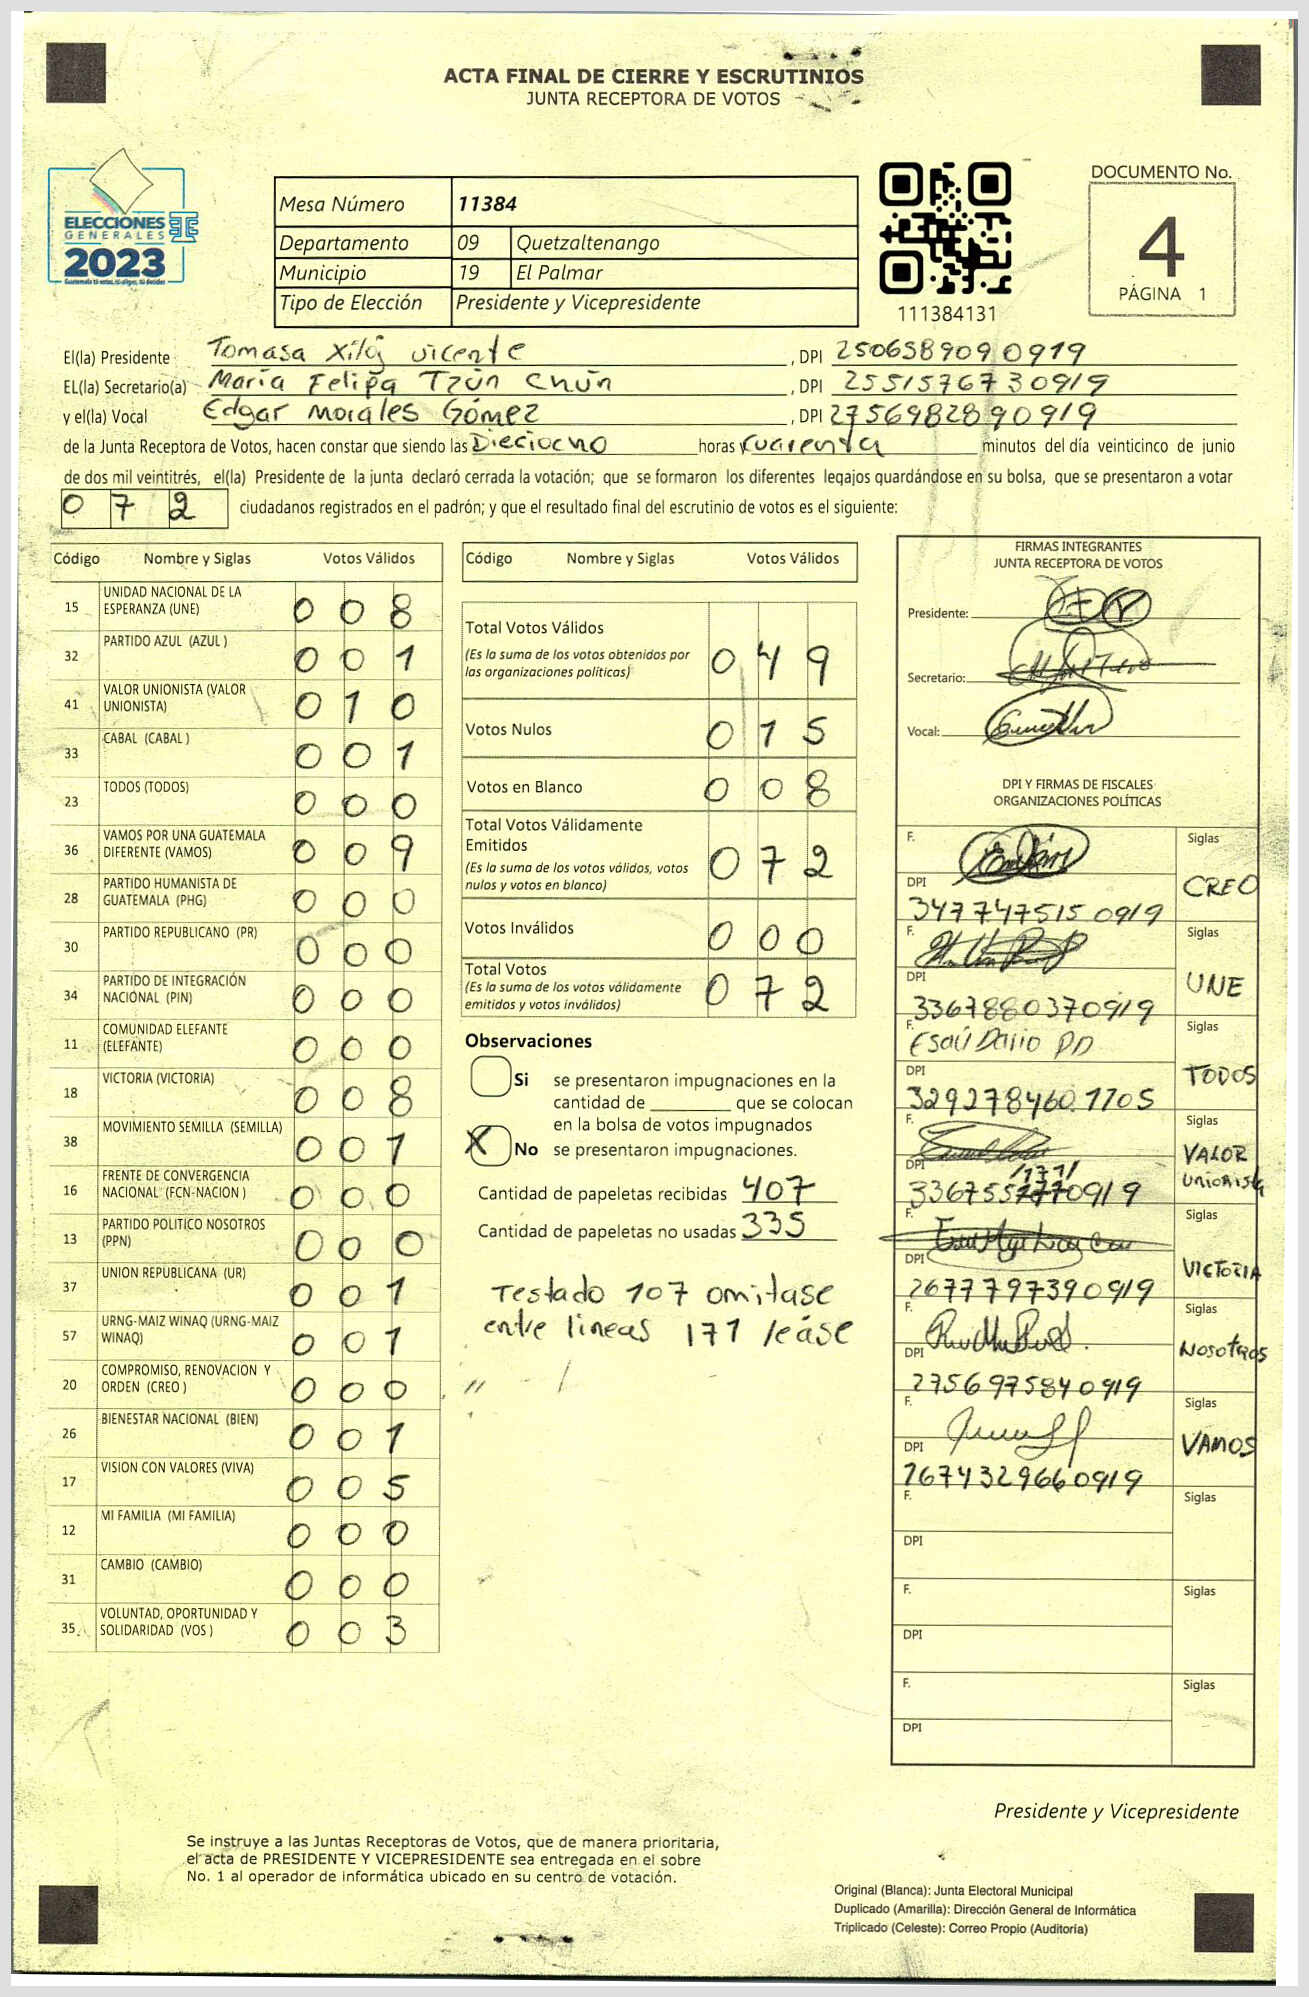 ACTA FINAL DE CIERRE Y ESCRUTINIOS
JUNTA RECEPTORA DE VOTOS
ELECCIONES
GENERALES
2023
Guatemala tú votas, tú eliges, tú decides
Mesa Número 11384
Departamento 09 Quetzaltenango
Municipio 19 El Palmar
Tipo de Elección Presidente y Vicepresidente
111384131
DOCUMENTO No.
4
PÁGINA 1
El(la) Presidente Tomasa Xiloj Vicente, DPI 2506589090919
EL(la) Secretario(a) María Felipa Tzún Chún, DPI 2551576730919
y el(la) Vocal Edgar Morales Gómez, DPI 2756982890919
de la Junta Receptora de Votos, hacen constar que siendo las Dieciocho horas y Cuarenta minutos del día veinticinco de junio
de dos mil veintitrés, el(la) Presidente de la junta declaró cerrada la votación; que se formaron los diferentes legajos guardándose en su bolsa, que se presentaron a votar
0 7 2 ciudadanos registrados en el padrón; y que el resultado final del escrutinio de votos es el siguiente:
Código Nombre y Siglas Votos Válidos
15 UNIDAD NACIONAL DE LA ESPERANZA (UNE) 0 0 8
32 PARTIDO AZUL (AZUL ) 0 0 1
41 VALOR UNIONISTA (VALOR UNIONISTA) 0 1 0
33 CABAL (CABAL ) 0 0 1
23 TODOS (TODOS) 0 0 0
36 VAMOS POR UNA GUATEMALA DIFERENTE (VAMOS) 0 0 9
28 PARTIDO HUMANISTA DE GUATEMALA (PHG) 0 0 0
30 PARTIDO REPUBLICANO (PR) 0 0 0
34 PARTIDO DE INTEGRACIÓN NACIONAL (PIN) 0 0 0
11 COMUNIDAD ELEFANTE (ELEFANTE) 0 0 0
18 VICTORIA (VICTORIA) 0 0 8
38 MOVIMIENTO SEMILLA (SEMILLA) 0 0 1
16 FRENTE DE CONVERGENCIA NACIONAL (FCN-NACION ) 0 0 0
13 PARTIDO POLITICO NOSOTROS (PPN) 0 0 0
37 UNION REPUBLICANA (UR) 0 0 1
57 URNG-MAIZ WINAQ (URNG-MAIZ WINAQ) 0 0 1
20 COMPROMISO, RENOVACION Y ORDEN (CREO ) 0 0 0
26 BIENESTAR NACIONAL (BIEN) 0 0 1
17 VISION CON VALORES (VIVA) 0 0 5
12 MI FAMILIA (MI FAMILIA) 0 0 0
31 CAMBIO (CAMBIO) 0 0 0
35 VOLUNTAD, OPORTUNIDAD Y SOLIDARIDAD (VOS ) 0 0 3
Código Nombre y Siglas Votos Válidos
Total Votos Válidos 0 4 9
(Es la suma de los votos obtenidos por
las organizaciones políticas)
Votos Nulos 0 1 5
Votos en Blanco 0 0 8
Total Votos Válidamente
Emitidos 0 7 2
(Es la suma de los votos válidos, votos
nulos y votos en blanco)
Votos Inválidos 0 0 0
Total Votos 0 7 2
(Es la suma de los votos válidamente
emitidos y votos inválidos)
Observaciones
Si se presentaron impugnaciones en la
cantidad de ________ que se colocan
en la bolsa de votos impugnados
X No se presentaron impugnaciones.
Cantidad de papeletas recibidas 407
Cantidad de papeletas no usadas 335
Testado 107 omitase
entre lineas 171 léase
FIRMAS INTEGRANTES
JUNTA RECEPTORA DE VOTOS
Presidente:
Secretario:
Vocal:
DPI Y FIRMAS DE FISCALES
ORGANIZACIONES POLÍTICAS
F. Siglas
DPI CREO
3477475150919
F. Siglas
DPI UNE
3367880370919
F. Esaú Dario Siglas
DPI TODOS
3292784601705
F. Siglas
DPI VALOR UNIONISTA
F. Siglas
DPI VICTORIA
2677797390919
F. Siglas
DPI NOSOTROS
2756975840919
F. Siglas
DPI VAMOS
F. Siglas
DPI
F. Siglas
DPI
F. Siglas
DPI
Presidente y Vicepresidente
Se instruye a las Juntas Receptoras de Votos, que de manera prioritaria,
el acta de PRESIDENTE Y VICEPRESIDENTE sea entregada en el sobre
No. 1 al operador de informática ubicado en su centro de votación.
Original (Blanca): Junta Electoral Municipal
Duplicado (Amarilla): Dirección General de Informática
Triplicado (Celeste): Correo Propio (Auditoría)